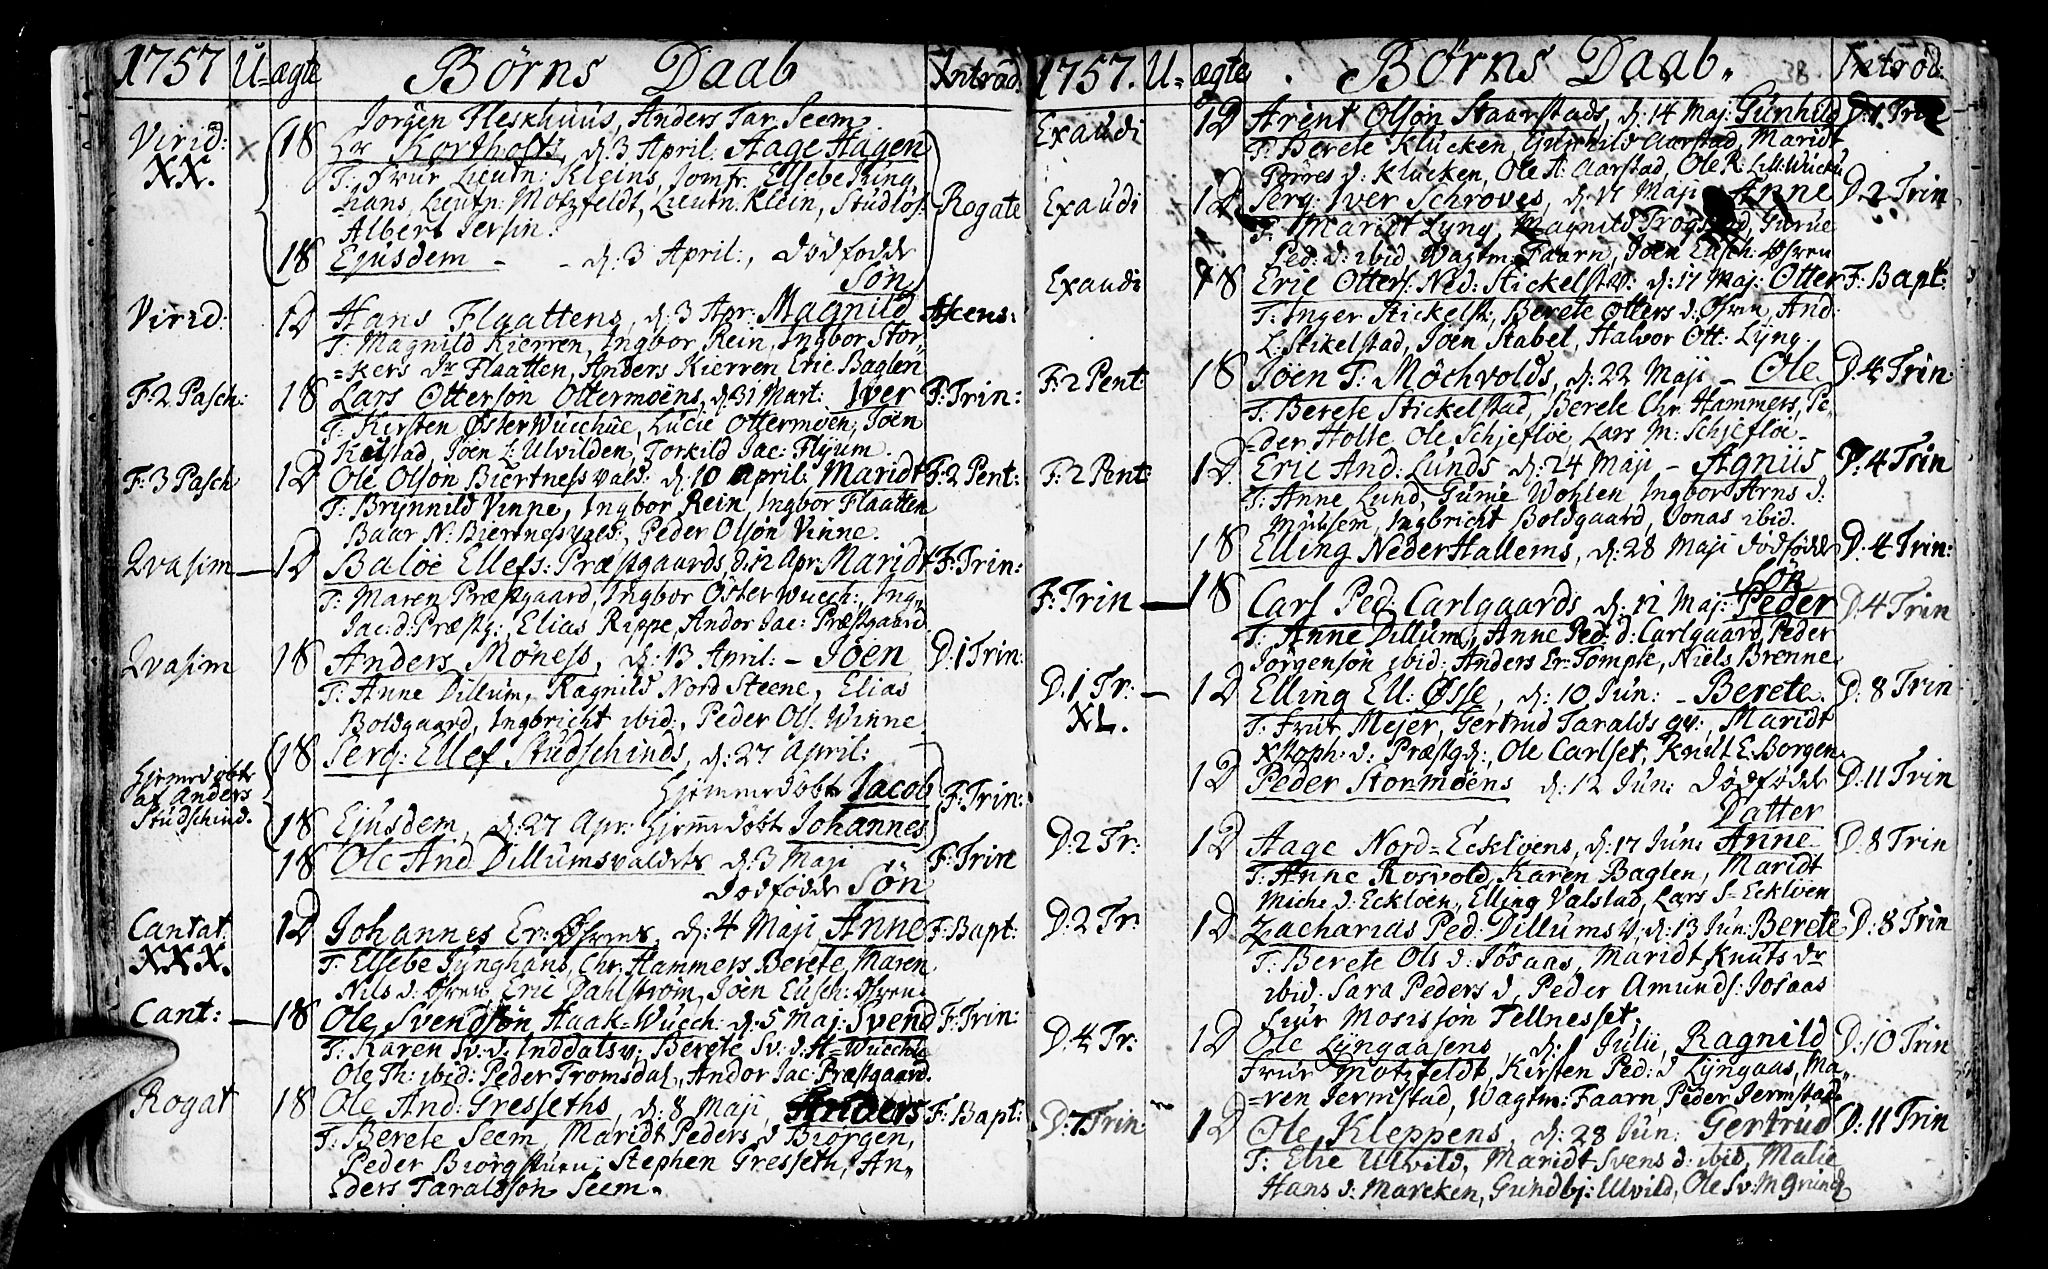 1757 U= ægte Børns Daab Introd.
Jørgen Fleskhuus, Anders Tar. Seem.
Virid: 18 Hr Korthofts, d: 3 April: Aage Hagen
XX. T: Frur Lieutn: Kleins, Jomfr. Elsebe Jüng
=hans, Lieutn: Motzfeldt, Lieutn. Klein, Studiøs: Rogate
Albert Jersin.
18 Ejusdem - - d: 3 April:, Dødfødde
Søn
Virid: 1D Hans Flaattens, d: 3 Apr: Magnild Ascens:
T: Magnild Kierren, Ingbor Rein, Ingbor Stor,
=kers dr Flaatten, Anders Kierren Eric Baglen
F: 2 Pasch: 18 Lars Ottersøn Ottermoens, d: 31 Mart: Iver F: Trin:
T: Kirsten Øster Wuchue, Lucie Ottermoen, Joen
Kelstad, Joen L: Ulvilden, Torkild Jac: Flyum.
F: 3 Pasch 1D Ole Olsøn Biertness vald. d: 10 April: Maridt F: 2 Pent:
T: Brynnild Vinne, Ingbor Rein, Ingbor Flaatten
Baar N: Biertnessvald:, Peder Olsøn Vinne.
Qvasim — 1D Baloe Ellefs: Præstgaards, d: 12 Apr: Maridt F: Trin:
T: Maren Præstgaard, Ingbor Østerwuech:, Ing,
Jac: d: Præstg:, Elias Rippe, Andor Jac: Præstgaard
Qvasim 18 Anders Møness, d: 13 April: - Joen D: 1 Trin:
T: Anne Dillum, Ragnild Nord Steene, Elias
Boldgaard, Ingbricht ibid:, Peder Ols. Winne
Hjemedøbt 18 Serg: Ellef Studschinds, d: 27 April:
af Anders Hjemmedøbt Jacob F: Trin:
Studschind. 18 Ejusdem, d: 27 Apr: Hjemedøbt Johannes
18 Ole And: Dillumsvaldets d: 3 Maji F: Trin
Dødfødde Søn
Cantat: 1D Johannes Er: Øsrens, d: 4 Maji Anne F: Bapt:
XXX. T: Elsebe Jynghans, Chr: Hammers Berete, Maren
Nils d: Øsren, Eric Dahlstrøm, Joen Eusch: Øsren
Cant: — 18 Ole Svendsøn Haak=Wuech: d: 5 Maj: Svend F: Trin:
T: Karen Sv: d: Inddalsv: Berete Sv: d: H=Wuechue
Ole Th: ibid: Peder Tromsdal, Andor Jac: Præstgaard.
Rogat 18 Ole And: Gresseths, d: 8 Maji, Anders F: Bapt:
T: Berete Seem, Maridt Peders d Biørgen,
Peder Biørgsturu, Stephen Gresseth, An,,
=ders Taraldsøn Seem.
1757. U= ægte Børns Daab. 38. Introd:
Exaudi 1D Arent Olsøn Staarstads, d: 14 Maj: Gunhild D: 1. Trin
T: Berete Klucken, Gunhild Aarstad, Maridt
Pørres d: Klucken, Ole A: Aarstad, Ole R. Lill: Wucku
Exaudi 1D Serg: Iver Schroves, d: 17 Maji Anne D: 2 Trin
T: Maridt Lyng, Magnild Trogstad, Gurue
Ped: d: ibid Wagtm. Faarn, Joen Eusch: Øsren
Exaudi 18 Eric Otters: Ned: Stickelst: d: 17 Maj: Otter F: Bapt:
T: Inger Stickelst:, Berete Otters d: Øsren, And:
L: Stikelstad, Joen Stabel, Halvor Ott: Lyng.
F: 2 Pent: 18 Joen T: Møchvolds, d: 22 Maji - Ole D: 4 Trin
T: Berete Stickelstad, Berete Chr: Hammers, Pe,
=der Holte, Ole Schjefloe, Lars M: Schjefloe-
F: 2 Pent: 1D. Eric And: Lunds d: 24 Maji - Agnus D: 4 Trin
T: Anne Lund, Gunie Wohlen, Ingbor Arns d:
Muusem, Ingbricht Boldgaard, Jonas ibid.
18 Elling Neder Hallems, d: 28 Maji dødfødde D: 4 Trin:
Søn
F: Trin — 18 Carl Ped: Carlgaards d: 12 Maj: Peder D: 4 Trin
T: Anne Dillum, Anne Ped: d: Carlgaard, Peder
Jørgensøn ibid, Anders Er: Tompte, Niels Brenne.
D: 1 Tr: — 1D Elling Ell: Øsse, d: 10 Jun: - Berete D: 8 Trin
XL. T: Frur Mejer, Gertrud Taralds qv:, Maridt
Xstoph: d: Præstgd:, Ole Carlset, Knudt E: Borgen
1D Peder Stormoens d: 12 Jun: Dødfødde D: 11 Trin
Datter
D: 2 Tr: 1D Aage Nord=Eckloens, d: 17 Jun: Anne D: 8 Trin
T: Anne Rosvold, Karen Baglen, Maridt
Mich: d: Eckloen, Elling Valstad, Lars S= Eckloen
D: 2 Tr: 1D Zacharias Ped: Dillumsv, d: 13 Jun: Berete D: 8 Trin
T: Berete Ols d: Jøsaas, Maridt Knuts dr
ibid. Sara Peders d, Peder Amunds: Josaas
Siur Mosissøn Tellnesset.
D: 4 Tr: 1D Ole Lyngaasens, d: 1 Julii, Ragnild D: 10 Trin
Frur Motzfeldt, Kirsten Ped: d Lyngaas, Ma,
=ren Jermstad, Wagtm: Faarn, Peder Jermstad
D: 7 Trin 1D Ole Kleppens, d: 28 Jun: Gertrud D: 11 Trin
T: Elie Ulvild, Maridt Svens d: ibid, Malie
Hans d: Marcken, Gundbj: Ulvild, Ole Sv: Mgrund